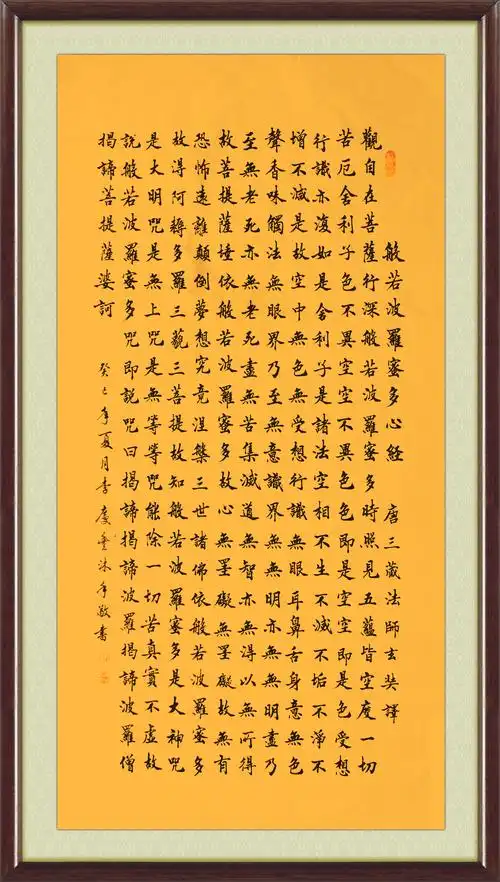 般若波羅蜜多心經 唐三藏法師玄奘譯
觀自在菩薩行深般若波羅蜜多時照見五蘊皆空度一切
苦厄舍利子色不異空空不異色色即是空空即是色受想
行識亦復如是舍利子是諸法空相不生不滅不垢不淨不
增不減是故空中無色無受想行識無眼耳鼻舌身意無色
聲香味觸法無眼界乃至無意識界無無明亦無無明盡乃
至無老死亦無老死盡無苦集滅道無智亦無得以無所得
故菩提薩埵依般若波羅蜜多故心無罣礙無罣礙故無有
恐怖遠離顛倒夢想究竟涅槃三世諸佛依般若波羅蜜多
故得阿耨多羅三藐三菩提故知般若波羅蜜多是大神咒
是大明咒是無上咒是無等等咒能除一切苦真實不虛故
說般若波羅蜜多咒即說咒曰揭諦揭諦波羅揭諦波羅僧
揭諦菩提薩婆訶
癸巳年夏月李慶沐手敬書